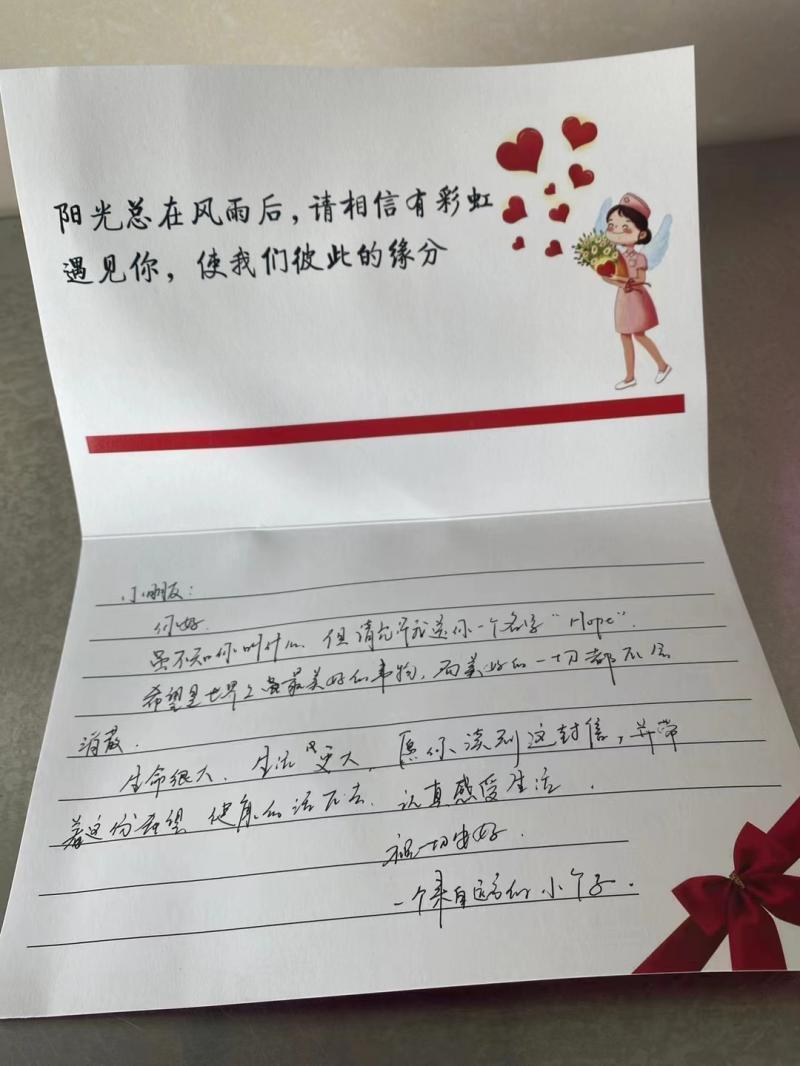 阳光总在风雨后，请相信有彩虹
遇见你，使我们彼此的缘分
小朋友：
你好.
虽不知你叫什么、但请允许我送你一个名字"Hope".
希望是世界上最美好的事物，而美好的一切都不会
消散.
生命很大、生活更大，愿你读到这封信，并带
着这份希望 健康的活下去、认真感受生活.
祝一切安好.
一个来自远方的小个子.